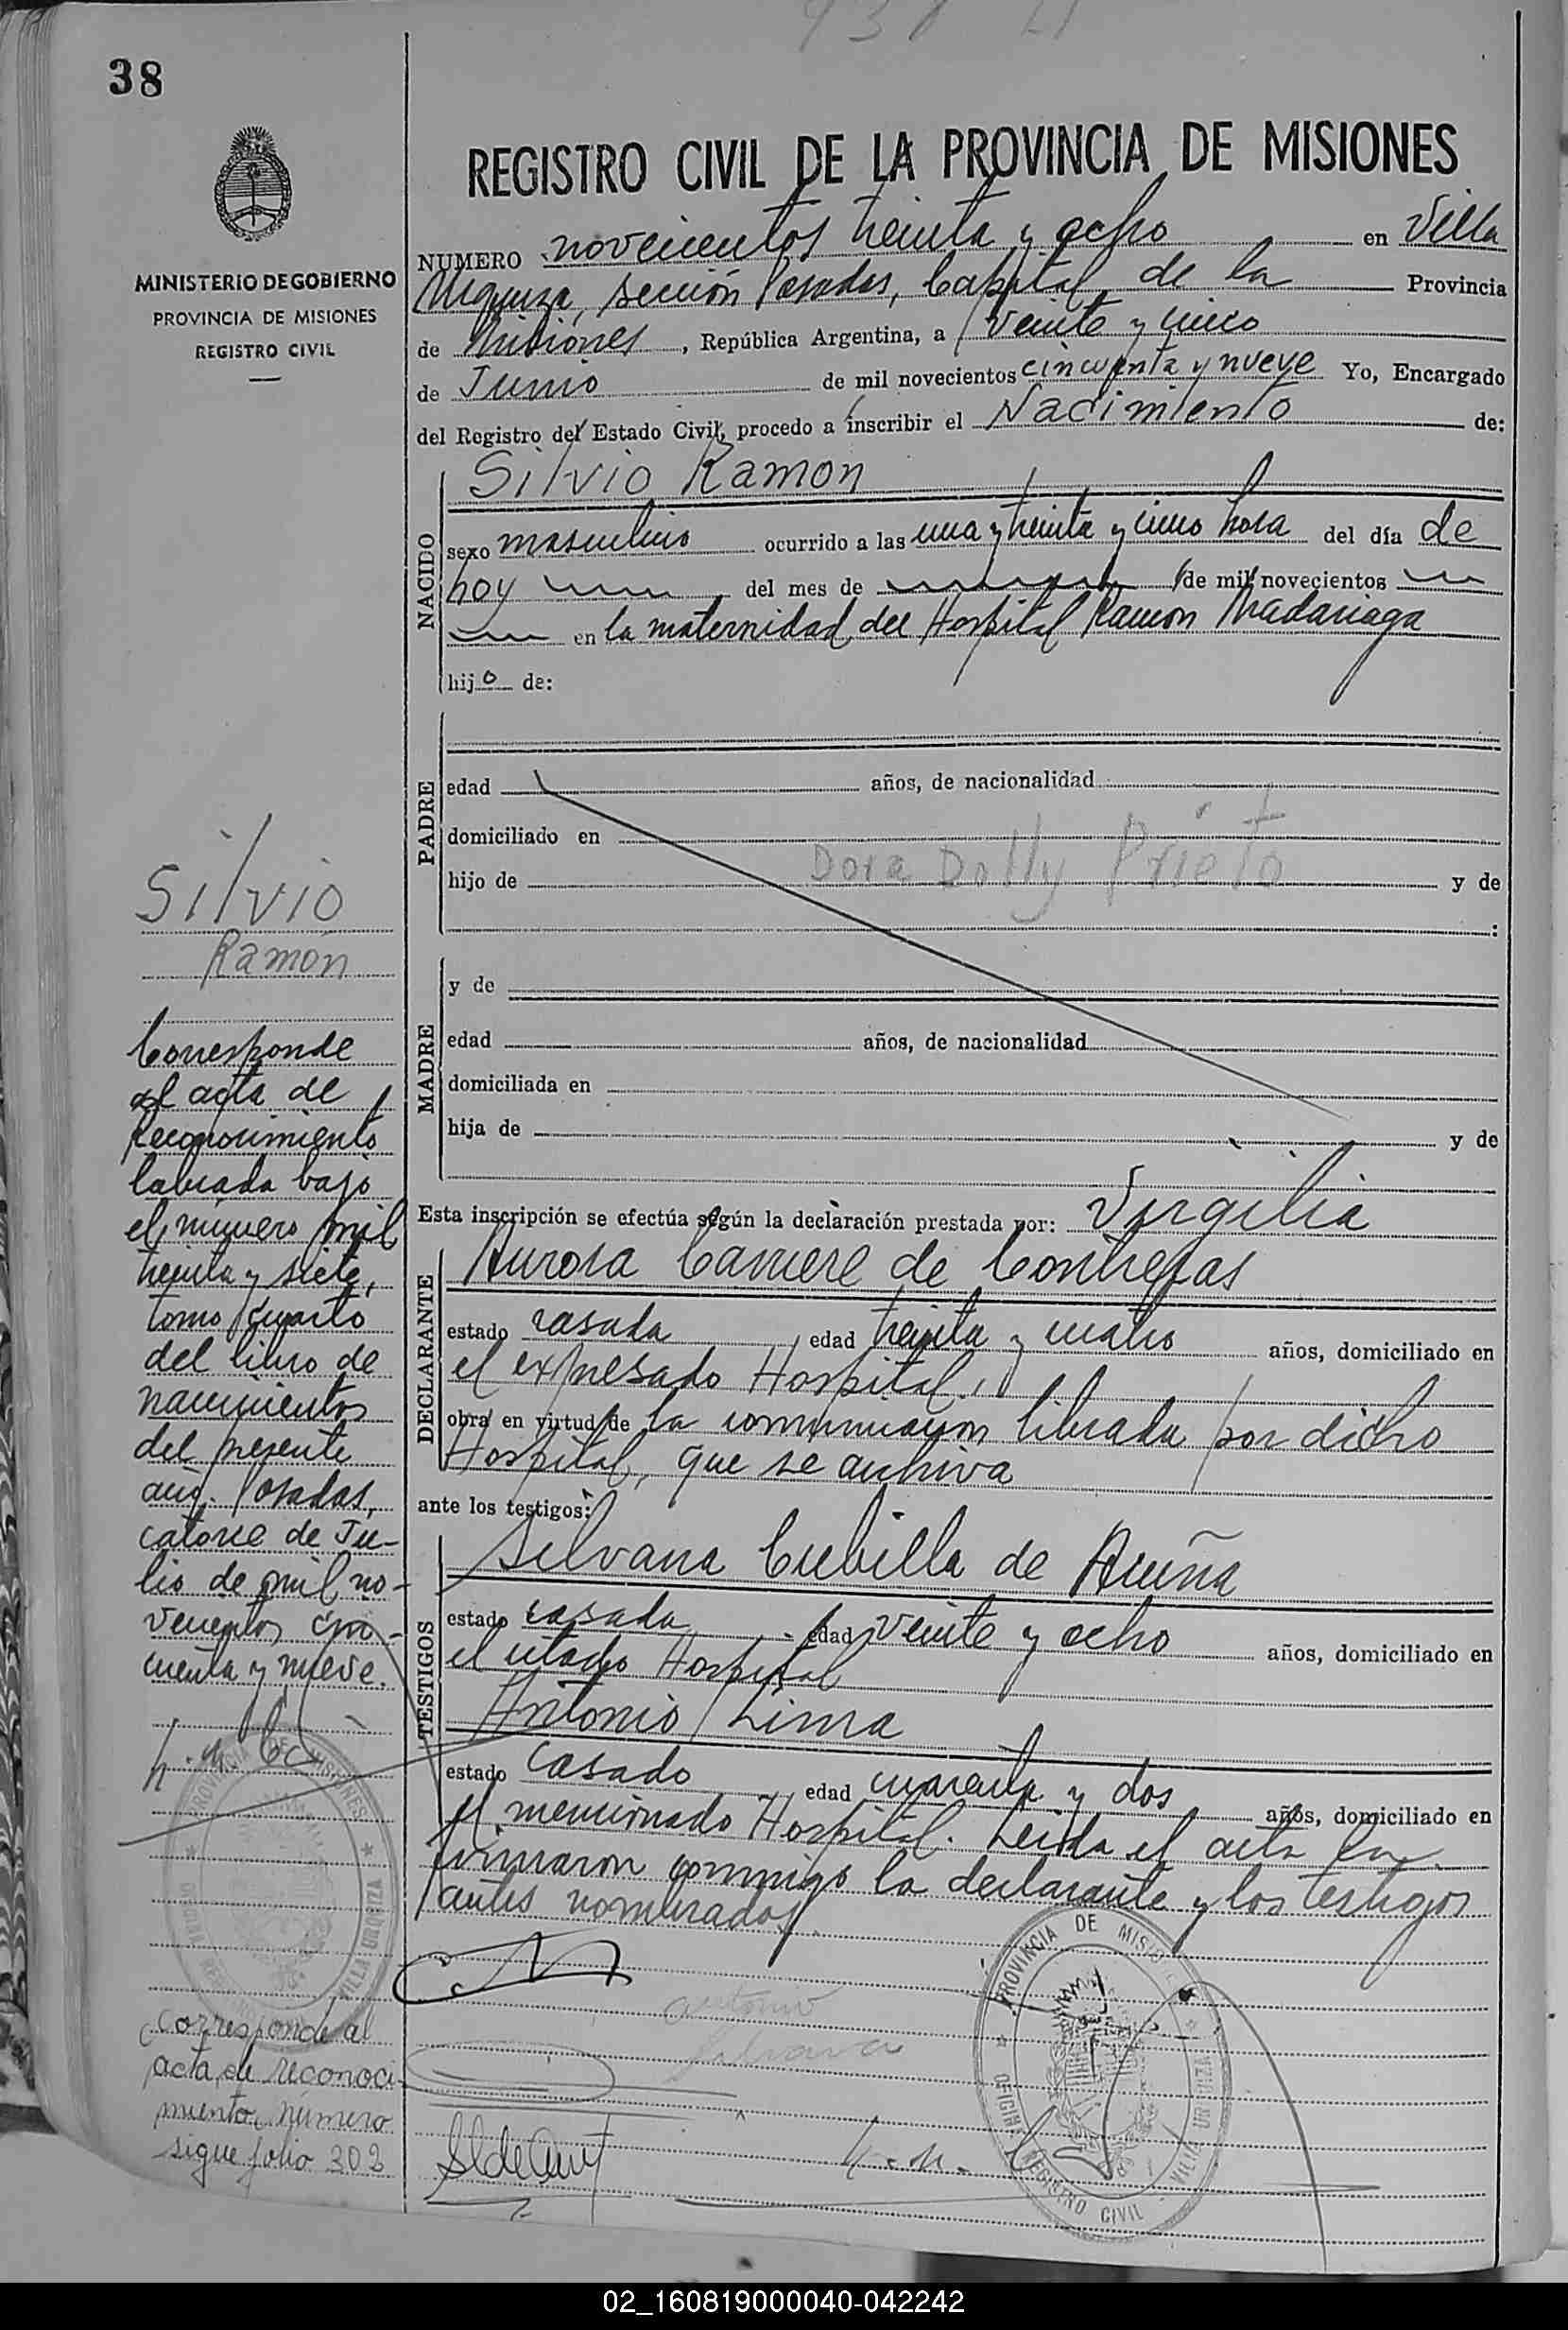 938
38
MINISTERIO DE GOBIERNO
PROVINCIA DE MISIONES
REGISTRO CIVIL
REGISTRO CIVIL DE LA PROVINCIA DE MISIONES
NUMERO novecientos treinta y ocho en Villa
Urquiza, sección Posadas, Capital de la Provincia
de Misiones, República Argentina, a veinte y cinco
de Junio de mil novecientos cincuenta y nueve Yo, Encargado
del Registro del Estado Civil, procedo a inscribir el Nacimiento de:
NACIDO
Silvio Ramon
sexo masculino ocurrido a las una y treinta y cinco hora del día de
hoy del mes de de mil novecientos
en la maternidad del Hospital Ramon Madariaga
hijo de:
PADRE
edad años, de nacionalidad
domiciliado en
Dora Dolly Prieto
hijo de y de
:
MADRE
y de
edad años, de nacionalidad
domiciliada en
hija de y de
Esta inscripción se efectúa según la declaración prestada por: Virgilia
DECLARANTE
Aurora Carriere de Contreras
estado casada, edad treinta y cuatro años, domiciliado en
el expresado Hospital,
obra en virtud de la comunicación librada por dicho
Hospital, que se archiva
ante los testigos:
TESTIGOS
Silvana Cubilla de Acuña
estado casada edad veinte y ocho años, domiciliado en
el citado Hospital
Antonio Lima
estado casado edad cuarenta y dos años, domiciliado en
el mencionado Hospital. Leida el acta la
firmaron conmigo la declarante y los testigos
antes nombrados
PROVINCIA DE MISIONES
REGISTRO CIVIL - VILLA URQUIZA
Silvio
Ramón
Corresponde
al acta de
Reconocimiento
labrada bajo
el número mil
treinta y siete,
tomo cuarto
del libro de
nacimientos
del presente
año. Posadas,
catorce de Ju-
lio de mil no-
vecientos cin-
cuenta y nueve.
PROVINCIA DE MISIONES
VILLA URQUIZA
Corresponde al
acta de reconoci-
miento número
sigue folio 302
02_160819000040-042242